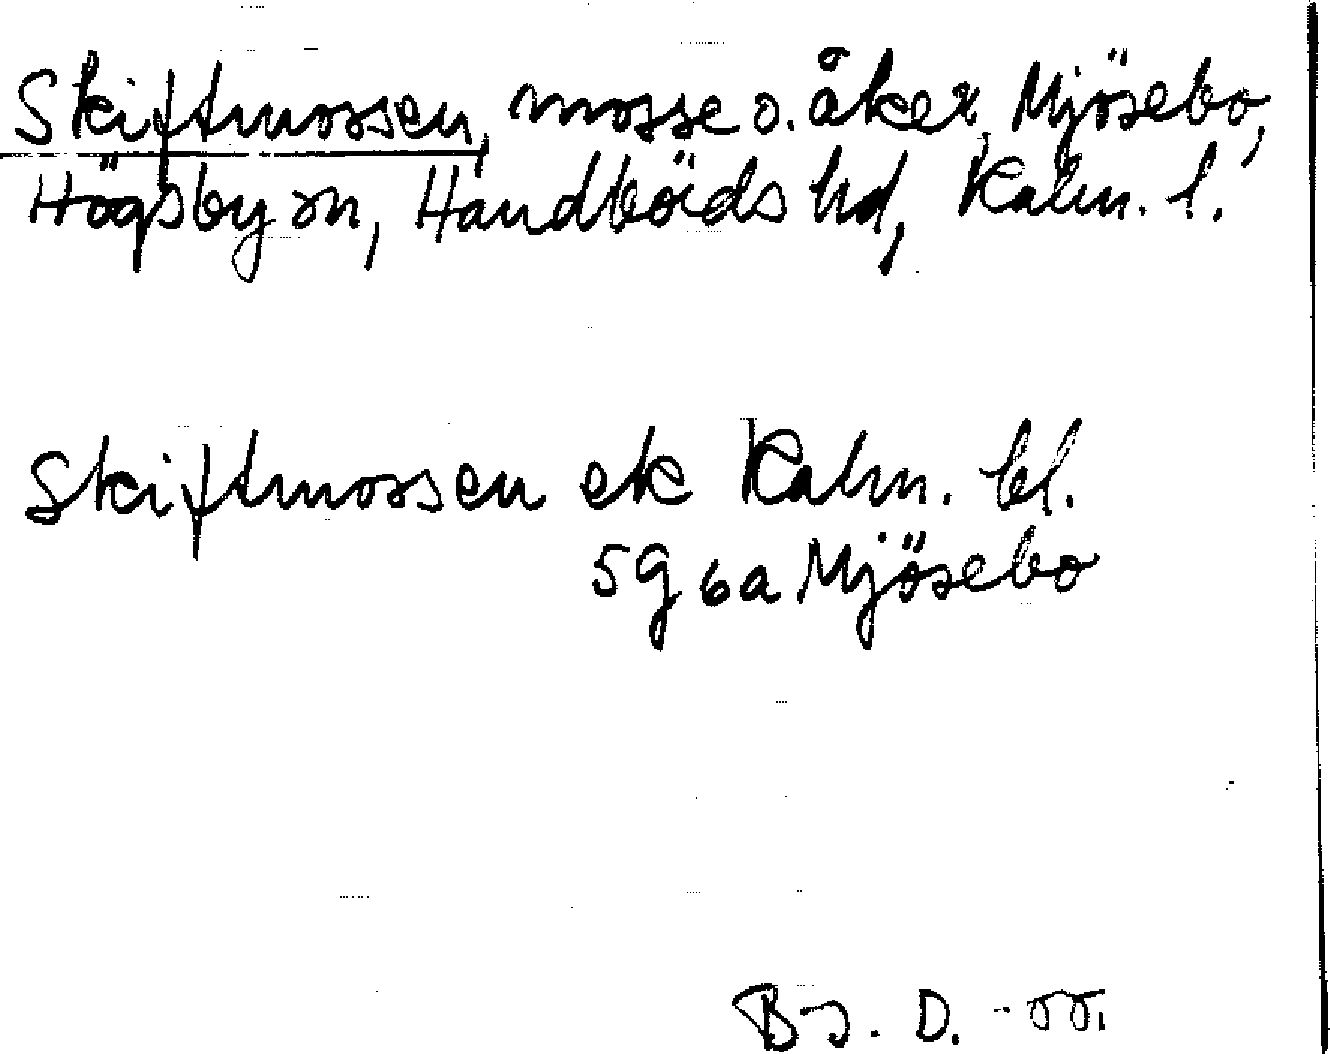 Skiftmossen, mosse o. åker, Mjösebo,
Högsby sn, Handbörds hd, Kalm. l.
Skiftmossen ek Kalm. bl.
5g 6a Mjösebo
Bj. D. -55.